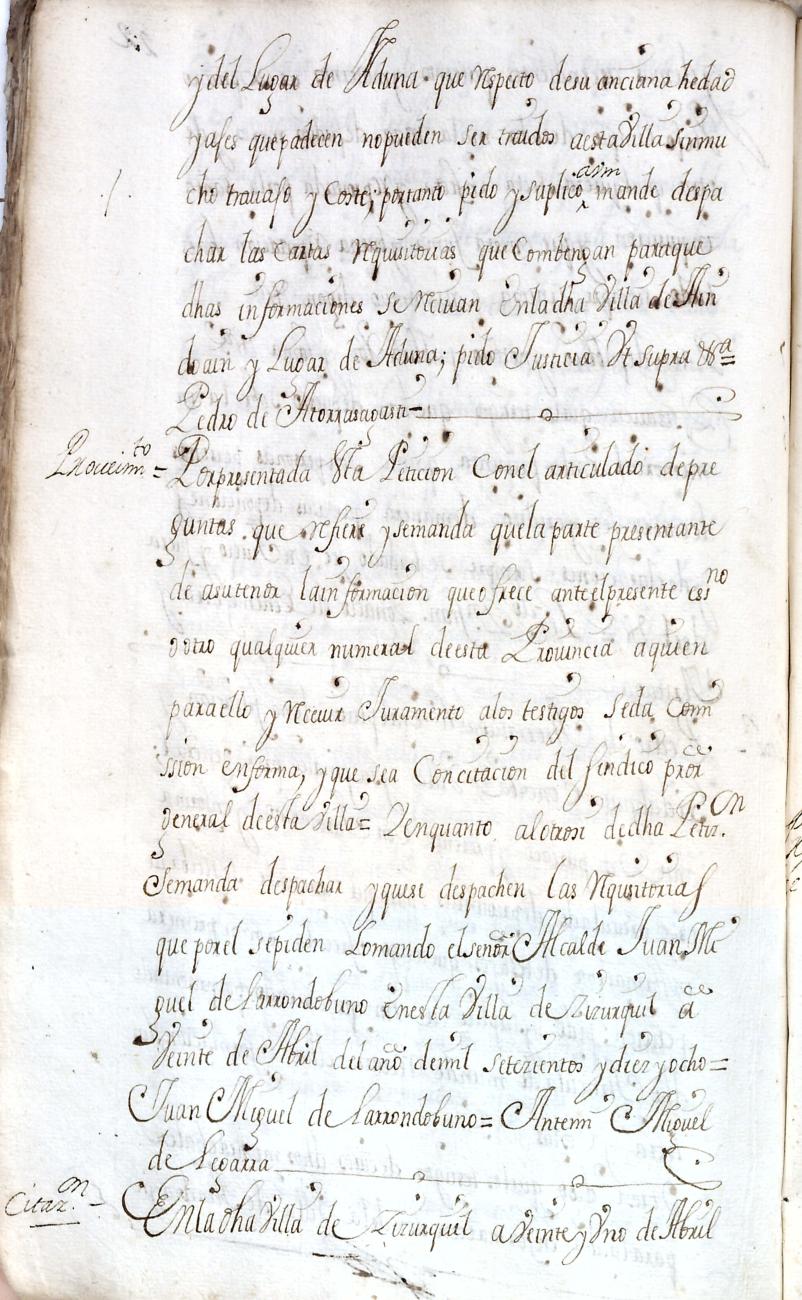 y del Lugar de Aduna que respecto de su anciana hedad
y ajes que padecen no pueden ser traudos a esta Villa sin mu
cho travajo y Coste; por tanto pido y suplico a Vm mande despa
char las Cartas requisitorias que Combengan para que
dhas informaciones se recivan En la dha Villa de Ain
doain y Lugar de Aduna; pido Justicia Vt supra &a=
Pedro de Atorrasagasti=
Proveim.to = Por presentada Esta Peticion Con el articulado de pre
guntas que refiere y se manda que la parte presentante
dé a su tenor la informacion que ofrece ante el presente ess.no
o otro qualquier numeral de esta Provincia a quien
para ello y recevir Juramento a los testigos se da Comi
ssion en forma, y que sea Con citacion del sindico pror
general de esta Villa= Y en quanto al otrosi de dha Petiz.on
Se manda despachar y que se despachen las requisitorias
que por el se piden Lo mando el señor Alcalde Juan Mi
guel de Larrondobuno En esta Villa de Zizurquil á
Veinte de Abril del año de mil setezientos y diez y ocho=
Juan Miguel de Larrondobuno= Antemi Miguel
de Legarra
Citaz.on - En la dha Villa de Zizurquil a Veinte y Vno de Abril